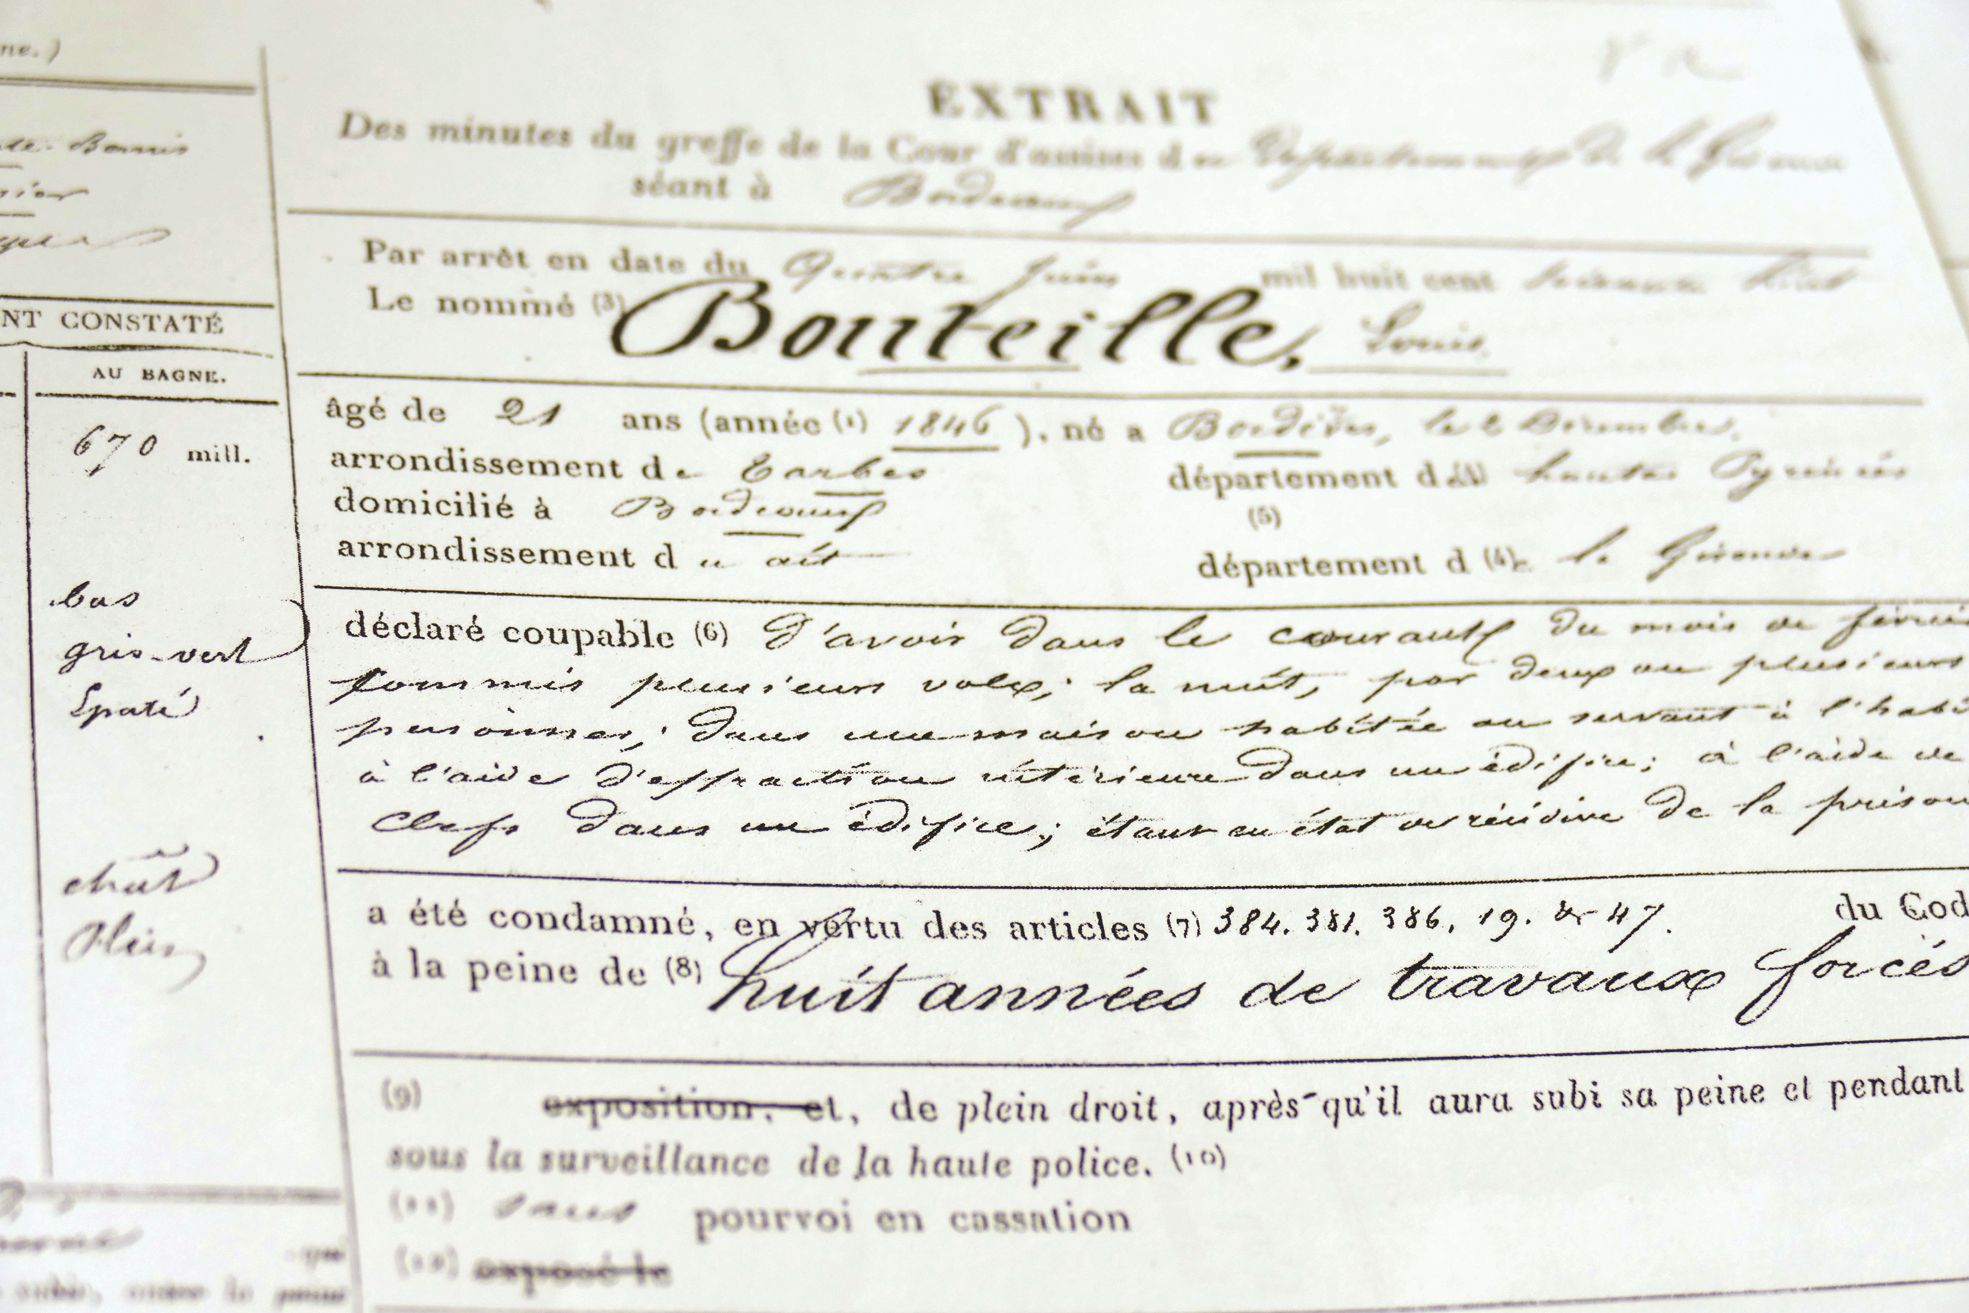 ne.)
Bernis
NT CONSTATÉ
AU BAGNE.
670 mill.
bas
gris-vert
Epaté
chât
Plein
qui
subir, outre la peine
EXTRAIT
Des minutes du greffe de la Cour d'assises d u Département de la Gironde
séant à Bordeaux
Par arrêt en date du Quatre Juin mil huit cent soixante huit
Le nommé (3) Bouteille, Louis
âgé de 21 ans (année (1) 1846 ), né a Bordères, le 2 Décembre,
arrondissement de Tarbes département d es hautes Pyrénées
domicilié à Bordeaux (5)
arrondissement d u dit département d (4) e la Gironde
déclaré coupable (6) D'avoir dans le courant du mois de févrie
commis plusieurs vols; la nuit, par deux ou plusieurs
personnes; dans une maison habitée ou servant à l'habi
à l'aide d'effraction intérieure dans un édifice; à l'aide de
clefs dans un édifice; étant en état de récidive de la prison
a été condamné, en vertu des articles (7) 384. 381. 386. 19. & 47. du Cod
à la peine de (8) huit années de travaux forcés
(9) exposition, et, de plein droit, après qu'il aura subi sa peine et pendant
sous la surveillance de la haute police. (10)
(11) sans pourvoi en cassation
(12) exposé le